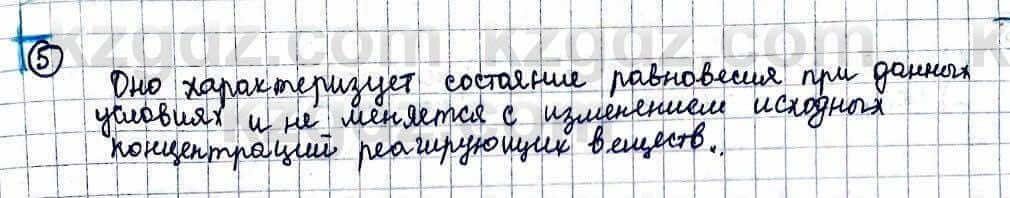 kzgdz.com kzgdz.com
5
Оно характеризует состояние равновесия при данных
условиях и не меняется с изменением исходных
концентраций реагирующих веществ.